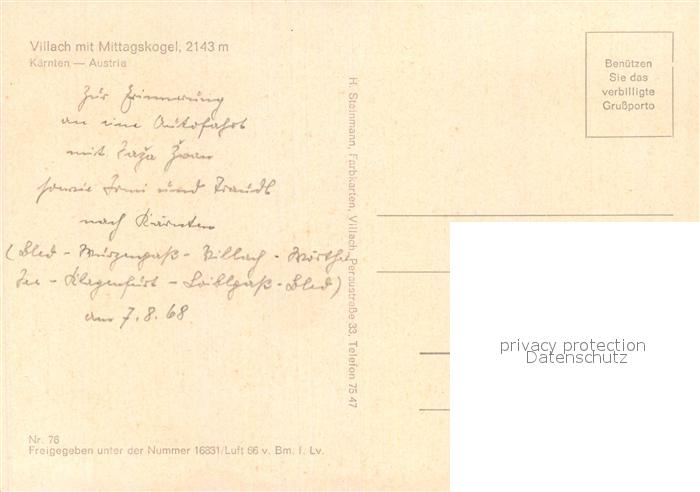 Villach mit Mittagskogel, 2143 m
Kärnten — Austria
Zur Erinnerung
an eine Autofahrt
mit
sowie Irmi und Traudl
nach Kärnten
(Bled - Wurzenpaß - Villach - Wörther
See - Klagenfurt - Loiblpaß - Bled)
am 7.8.68
Nr. 76
Freigegeben unter der Nummer 16831/Luft 66 v. Bm. f. Lv.
H. Steinmann, Farbkarten, Villach, Peraustraße 33, Telefon 75 47
Benützen
Sie das
verbilligte
Grußporto
privacy protection
Datenschutz